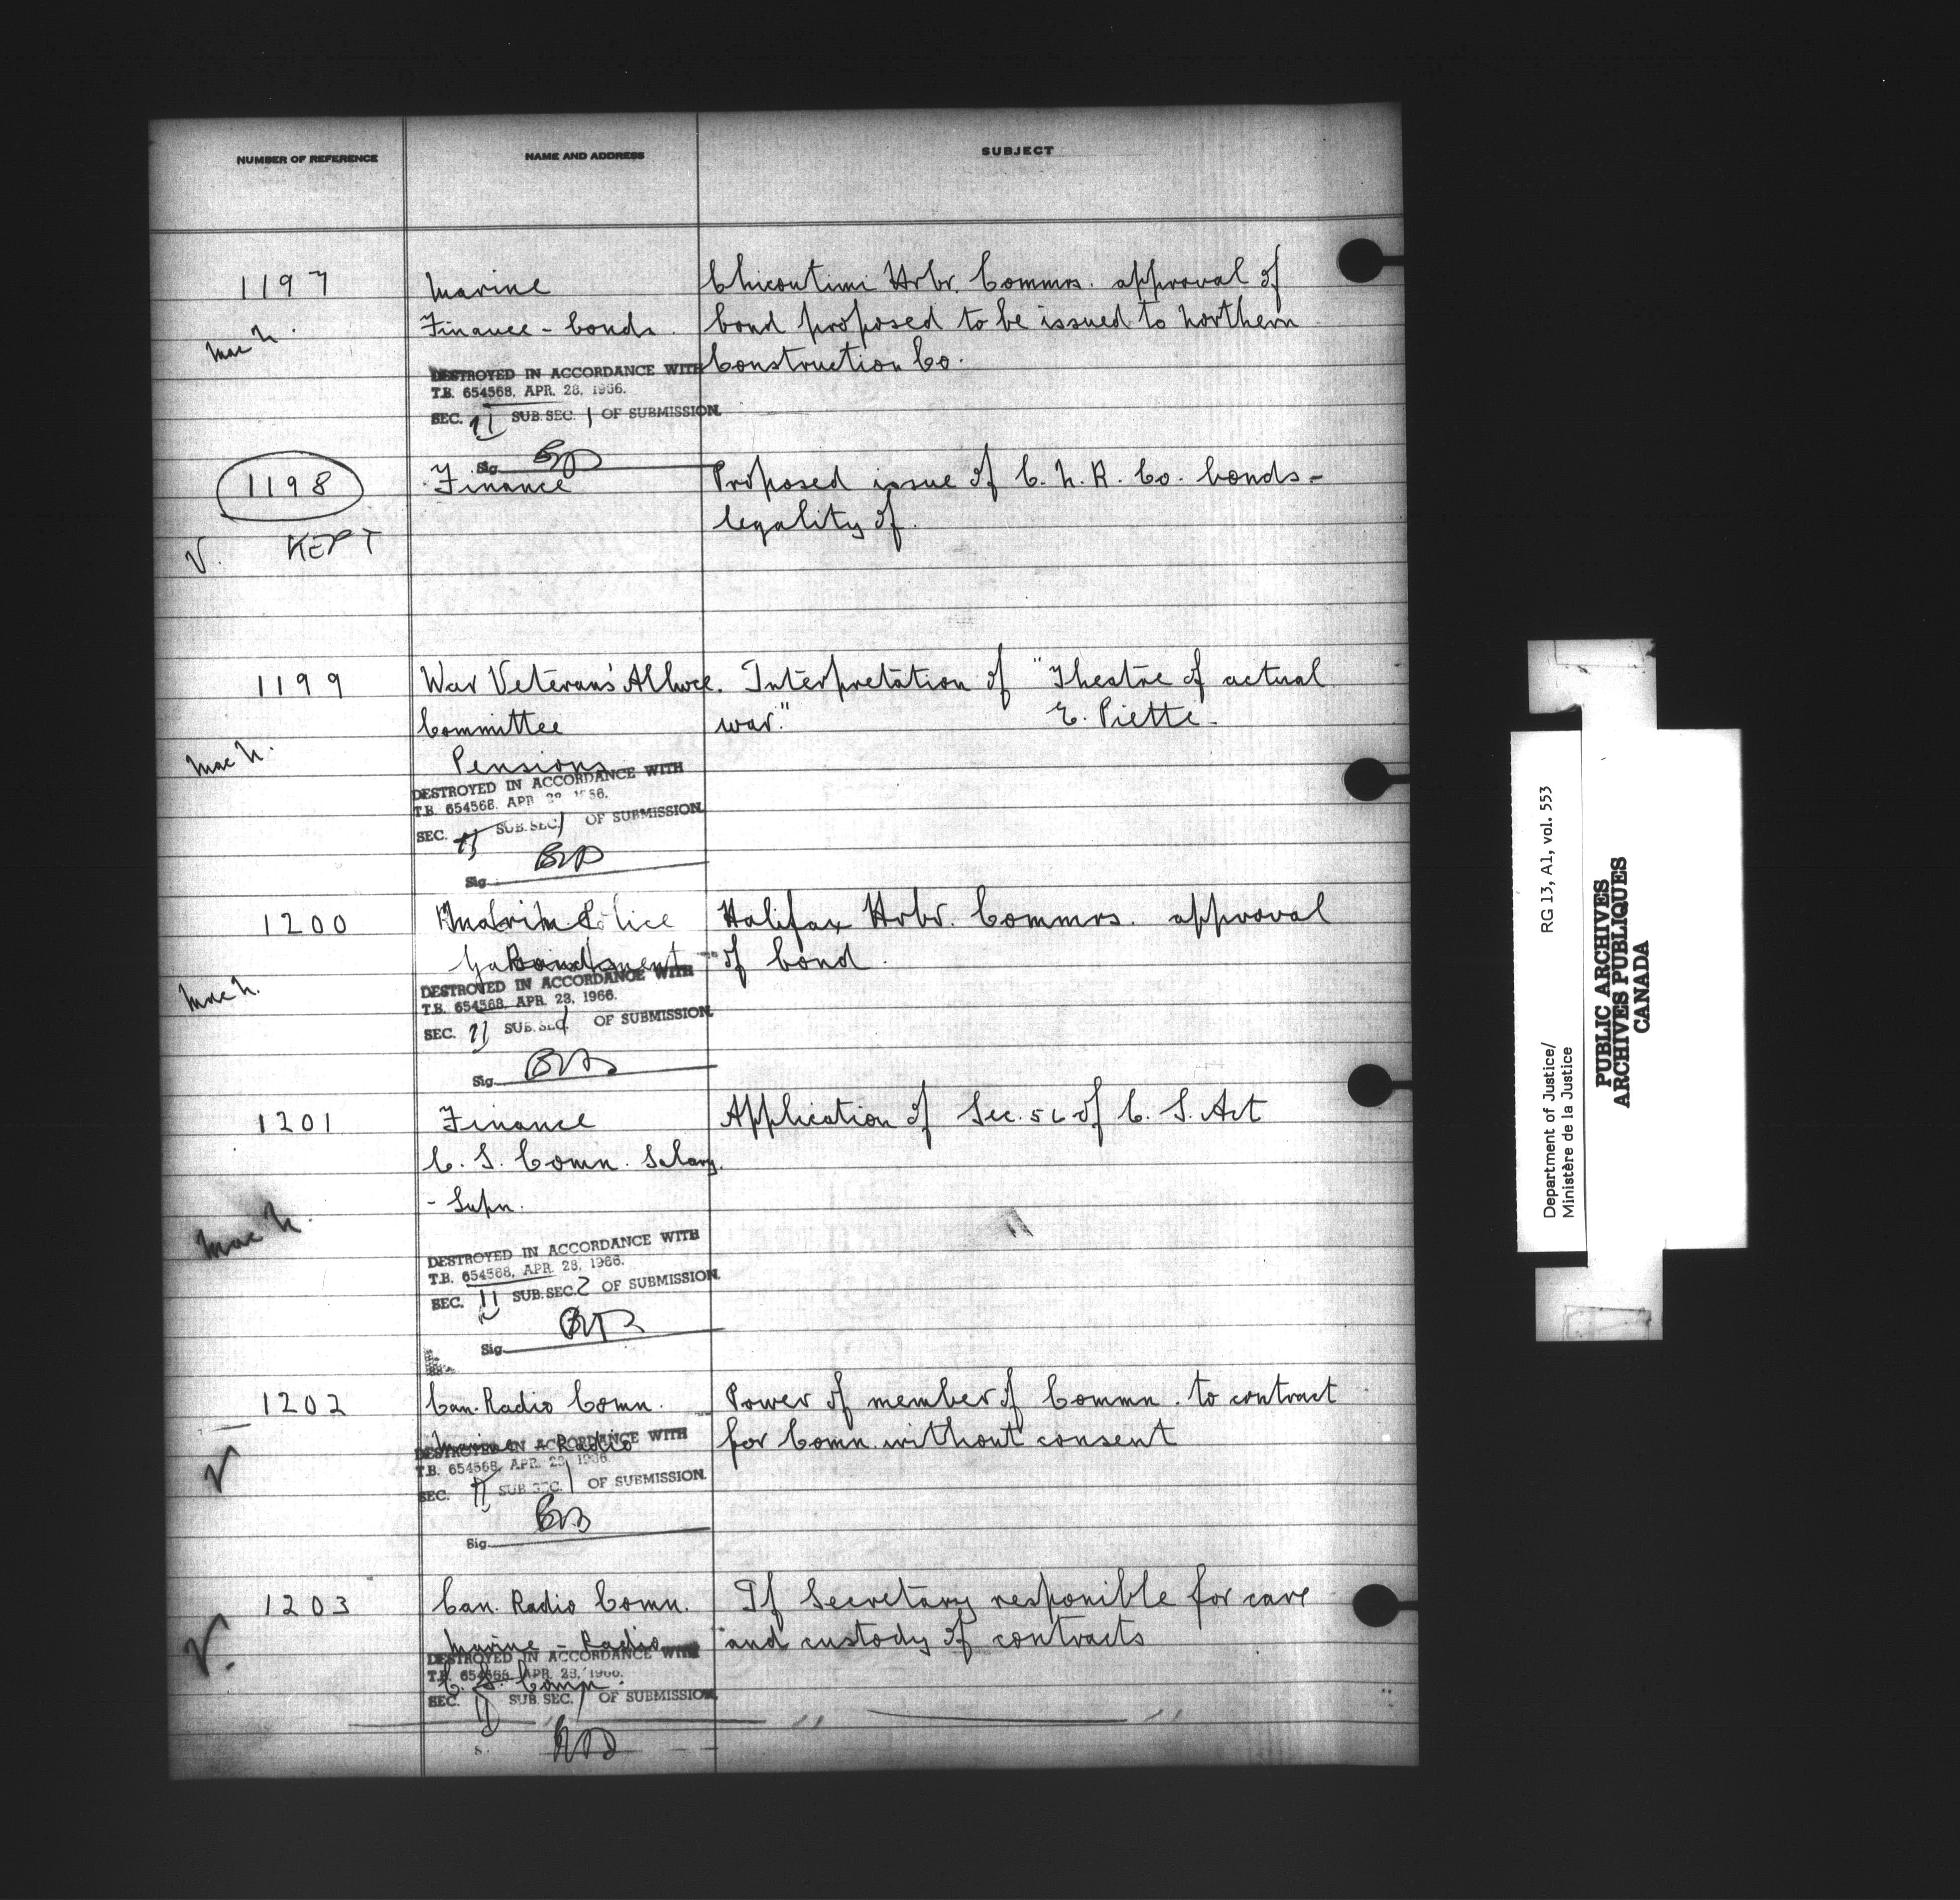 NUMBER OF REFERENCE NAME AND ADDRESS SUBJECT
1197 Marine Chicoutimi Hrbr. Commrs. approval of
Mac N. Finance - bonds. bond proposed to be issued to Northern
Construction Co.
DESTROYED IN ACCORDANCE WITH
T.B. 654568, APR. 28, 1966.
SEC. 11 SUB. SEC. 1 OF SUBMISSION.
Sig.
1198 Finance Proposed issue of C. N. R. Co. bonds -
legality of.
V. KEPT
1199 War Veterans' Allwce. Interpretation of "Theatre of actual
Committee war." E. Piette.
Mac N. Pensions
DESTROYED IN ACCORDANCE WITH
T.B. 654568, APR 28 1966.
SEC. 11 SUB. SEC. 1 OF SUBMISSION.
Sig.
1200 Halifax Hrbr. Commrs. approval
of bond.
Mac N.
DESTROYED IN ACCORDANCE WITH
T.B. 654568, APR. 28, 1966.
SEC. 11 SUB. SEC. 1 OF SUBMISSION.
Sig.
1201 Finance Application of Sec. of C. S. Act
C. S. Comn. Salary.
- Supn.
Mac N.
DESTROYED IN ACCORDANCE WITH
T.B. 654568, APR. 28, 1966.
SEC. 11 SUB. SEC. 2 OF SUBMISSION.
Sig.
1202 Can. Radio Comn. Power of member of Commn. to contract
Marine - Radio for Comn. without consent
V
DESTROYED IN ACCORDANCE WITH
T.B. 654568, APR. 28, 1966.
SEC. 11 SUB. SEC. 1 OF SUBMISSION.
Sig.
1203 Can. Radio Comn. If Secretary responsible for care
V. Marine - Radio and custody of contracts
C. S. Comn.
DESTROYED IN ACCORDANCE WITH
T.B. 654568, APR. 28, 1966.
SEC. 11 SUB. SEC. 1 OF SUBMISSION.
Department of Justice/ RG 13, A1, vol. 553
Ministère de la Justice
PUBLIC ARCHIVES
ARCHIVES PUBLIQUES
CANADA